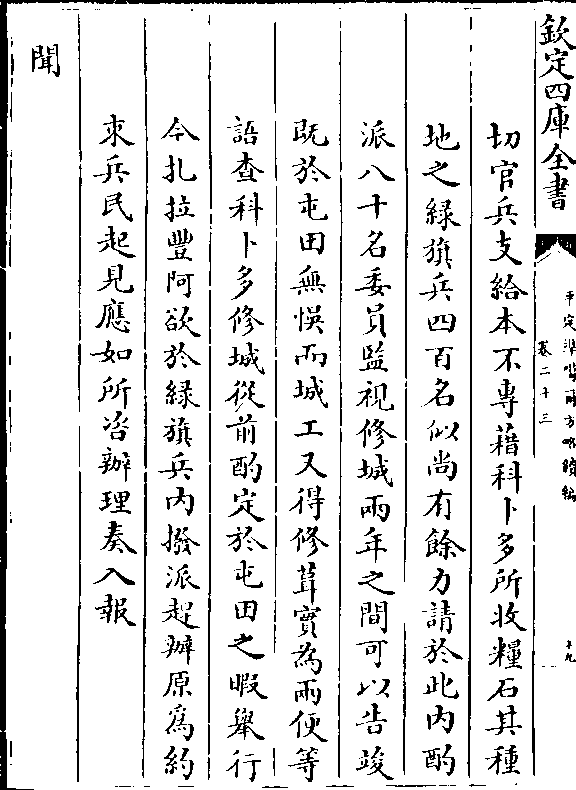 欽定四庫全書
平定準噶爾方畧續編
卷二十三
十九
切官兵支給本不專藉科卜多所收糧石其種
地之綠旗兵四百名似尚有餘力請於此內酌
派八十名委員監視修城兩年之間可以告竣
既於屯田無悞而城工又得修葺實為兩便等
語查科卜多修城從前酌定於屯田之暇舉行
今扎拉豐阿欲於綠旗兵內撥派趕辦原為約
束兵民起見應如所咨辦理奏入報
聞